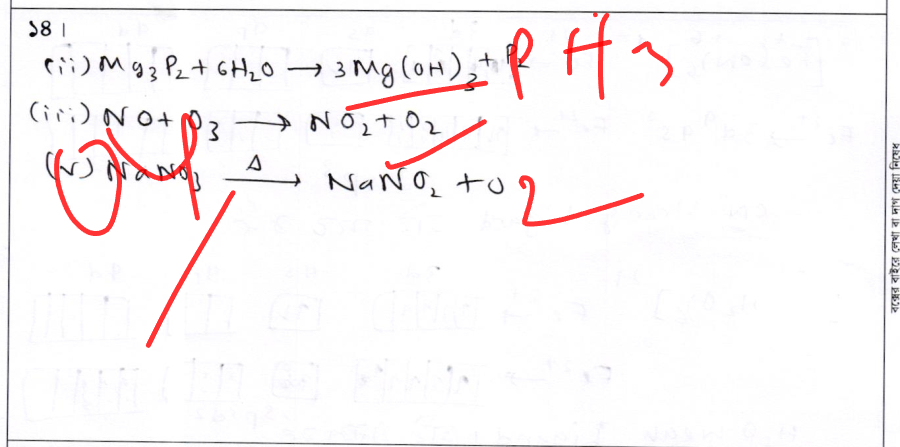 ১৪।
(ii) Mg₃P₂ + 6H₂O → 3Mg(OH)₃ + P₂ PH₃
(iii) NO + O₃ → NO₂ + O₂
(v) NaNO₃ Δ→ NaNO₂ + O₂
বক্সের বাইরে লেখা বা দাগ দেয়া নিষেধ